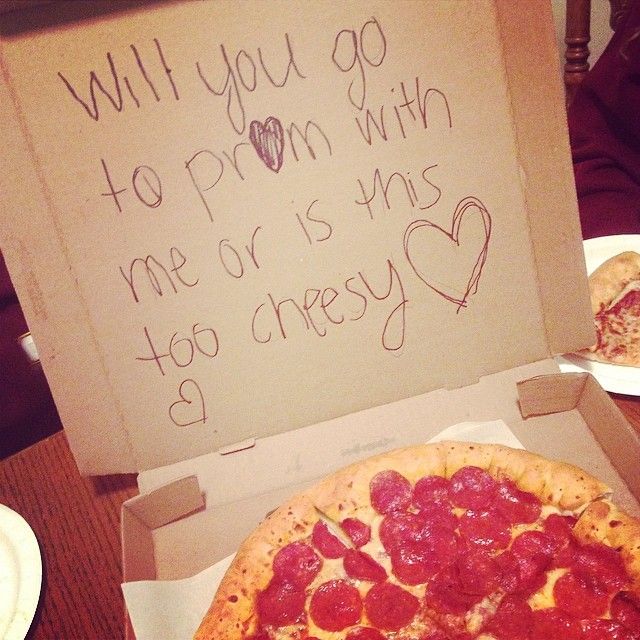 Will you go
to pr♥m with
me or is this
too cheesy ♡
♡